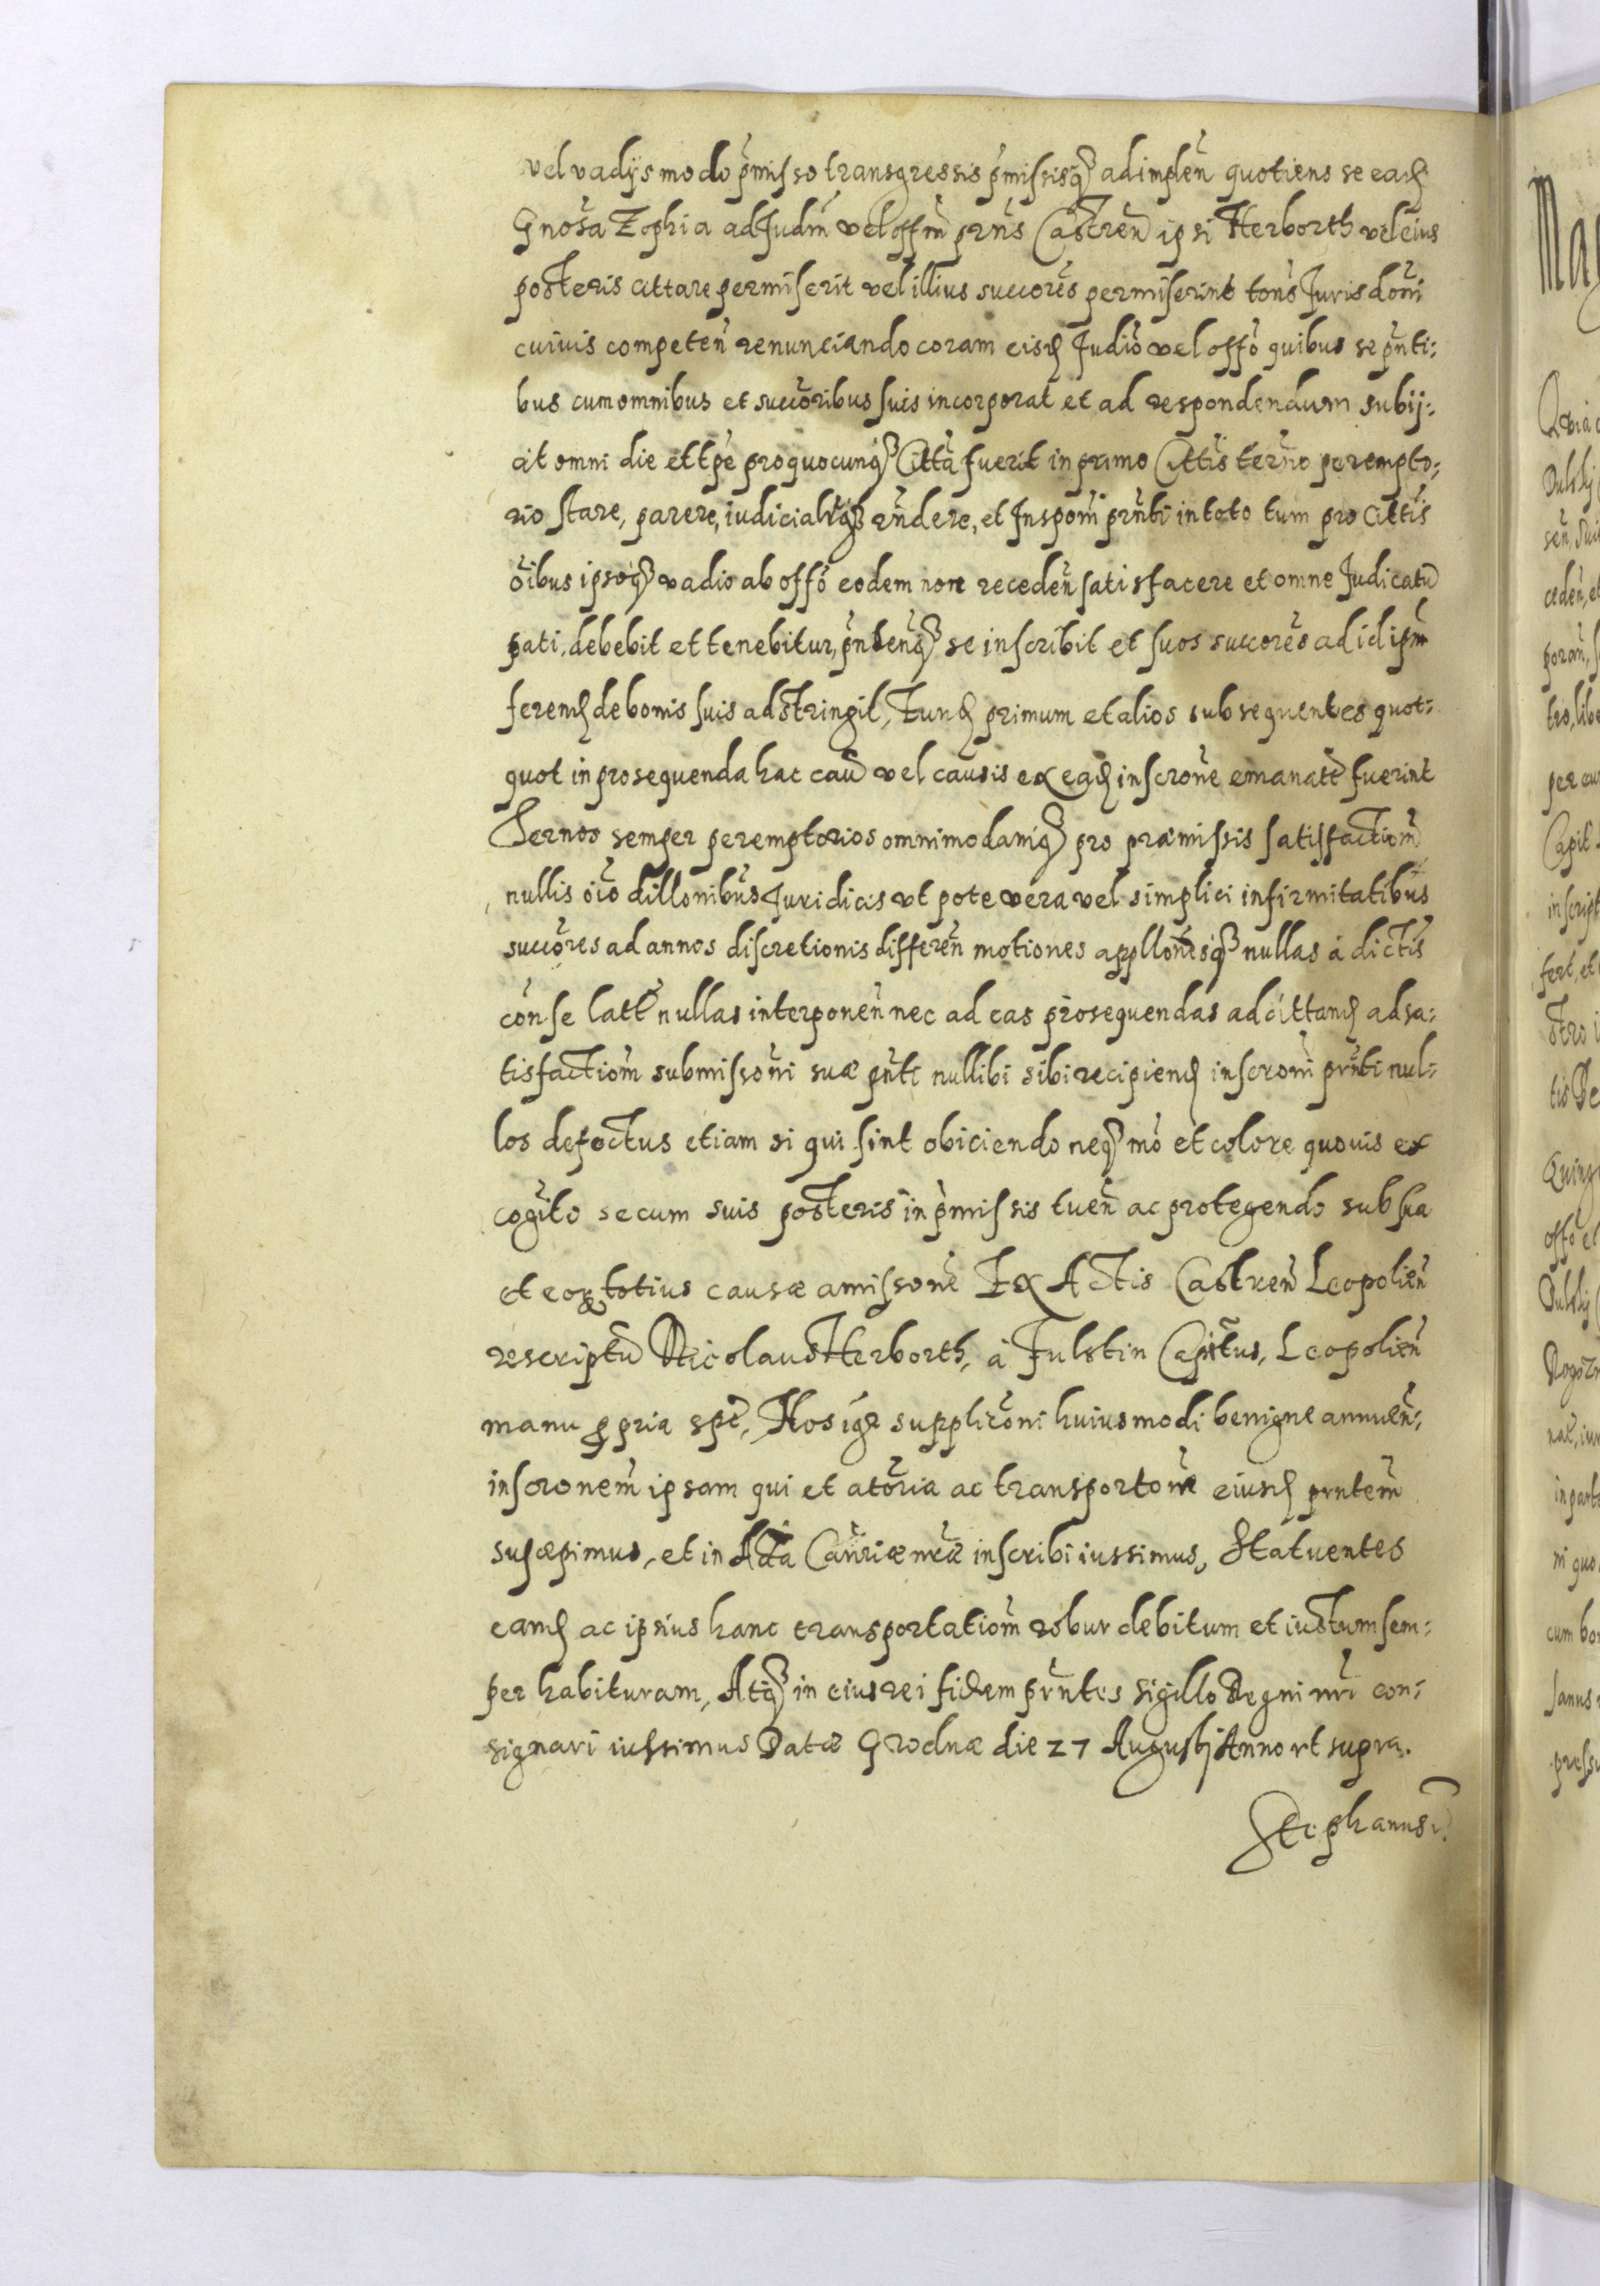 vel vadÿs modo p̃misso transgressis p̃missisq̃ adimplen̄ quotiens se ead̃
Gnosa Zophia ad Jud̃m vel off̃m pr̃ns Castren̄ ipsi Herborth vel eius
posteris cittare permiserit vel illius succores permiserint tons Jurisdoni
cuiuis competen̄ renunciando coram eisd̃ Judio vel offo quibus se pñti:
bus cum omnibus et succoribus suis incorporat et ad respondendum subij:
cit omni die et tpe pro quocunq̃ Citta fuerit in primo Cittis termo perempto:
rio stare, parere, iudicialrq̃ rñdere, et Inspom̃ prñti in toto tum pro Cittis
oibus ipsoq̃ vadio ab offo eodem non receden̄ satisfacere et omne Judicatũ
pati, debebit et tenebitur, pñdenq̃ se inscribit et suos succores ad id ipm̃
ferend̃ de bonis suis adstringit, Tund̃ primum et alios subsequentes quot:
quot in prosequenda hac caũ vel causis ex ead̃ inscrone emanatt̃ fuerint
Ternos semper peremptorios omnimodamq̃ pro præmissis satisfactiom̃
nullis oio dillonibus Juridicis vt pote vera vel simplici infirmitatibus
succores ad annos discretionis differen̄ motiones appllonesq̃ nullas á dictis
con se latt̃ nullas interponen̄ nec ad eas prosequendas ad cittand̃ ad sa:
tisfactiom̃ submissoni suæ pñti nullibi sibi recipiend̃ inscroni prñti nul:
los defectus etiam si qui sint obiciendo neq̃ mo et colore quouis ex
cogito se cum suis posteris in p̃missis tuen̄ ac protegendo sub sua
et eoꝝ totius causæ amissone Ex Actis Castren̄ Leopolien̄
rescriptũ Nicolaus Herborth, á Fulstin Capitus, Leopolien̄
manu ꝓpria spt̃, Nos igr supplitoni huiusmodi benigne annuen̄:
inscronem̃ ipsam qui et atoria ac transportone eiusd̃ prntem̃
suscæpimus, et in Acta Canriæ nræ inscribi iussimus, Statuentes
eamd̃ ac ipsius hanc transportatiom̃ robur debitum et iustum sem:
per habituram, Atq̃ in eius rei fidem prñtes sigillo Regni nri con:
signari iussimus Datæ Grodnæ die 27 Augustj Anno vt supra.
Stephanus R